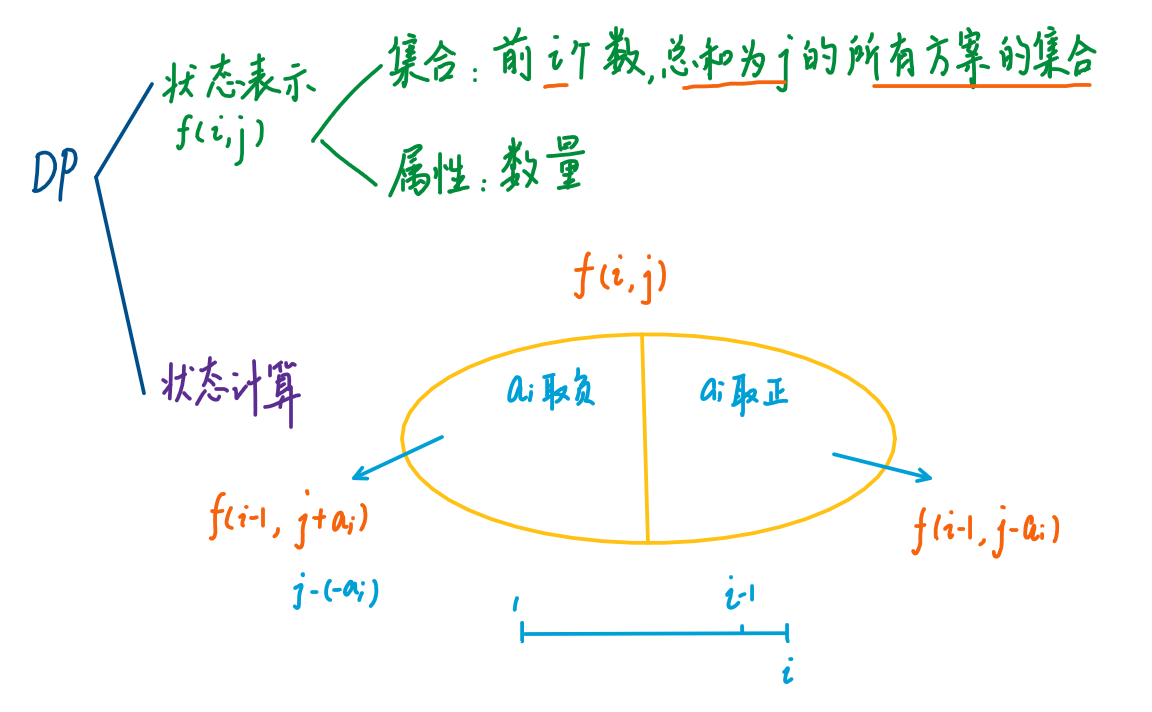 DP
状态表示
f(i,j)
集合：前i个数,总和为j的所有方案的集合
属性：数量
状态计算
f(i,j)
ai取负
ai取正
f(i-1, j+ai)
j-(-ai)
f(i-1,j-ai)
1
i-1
i